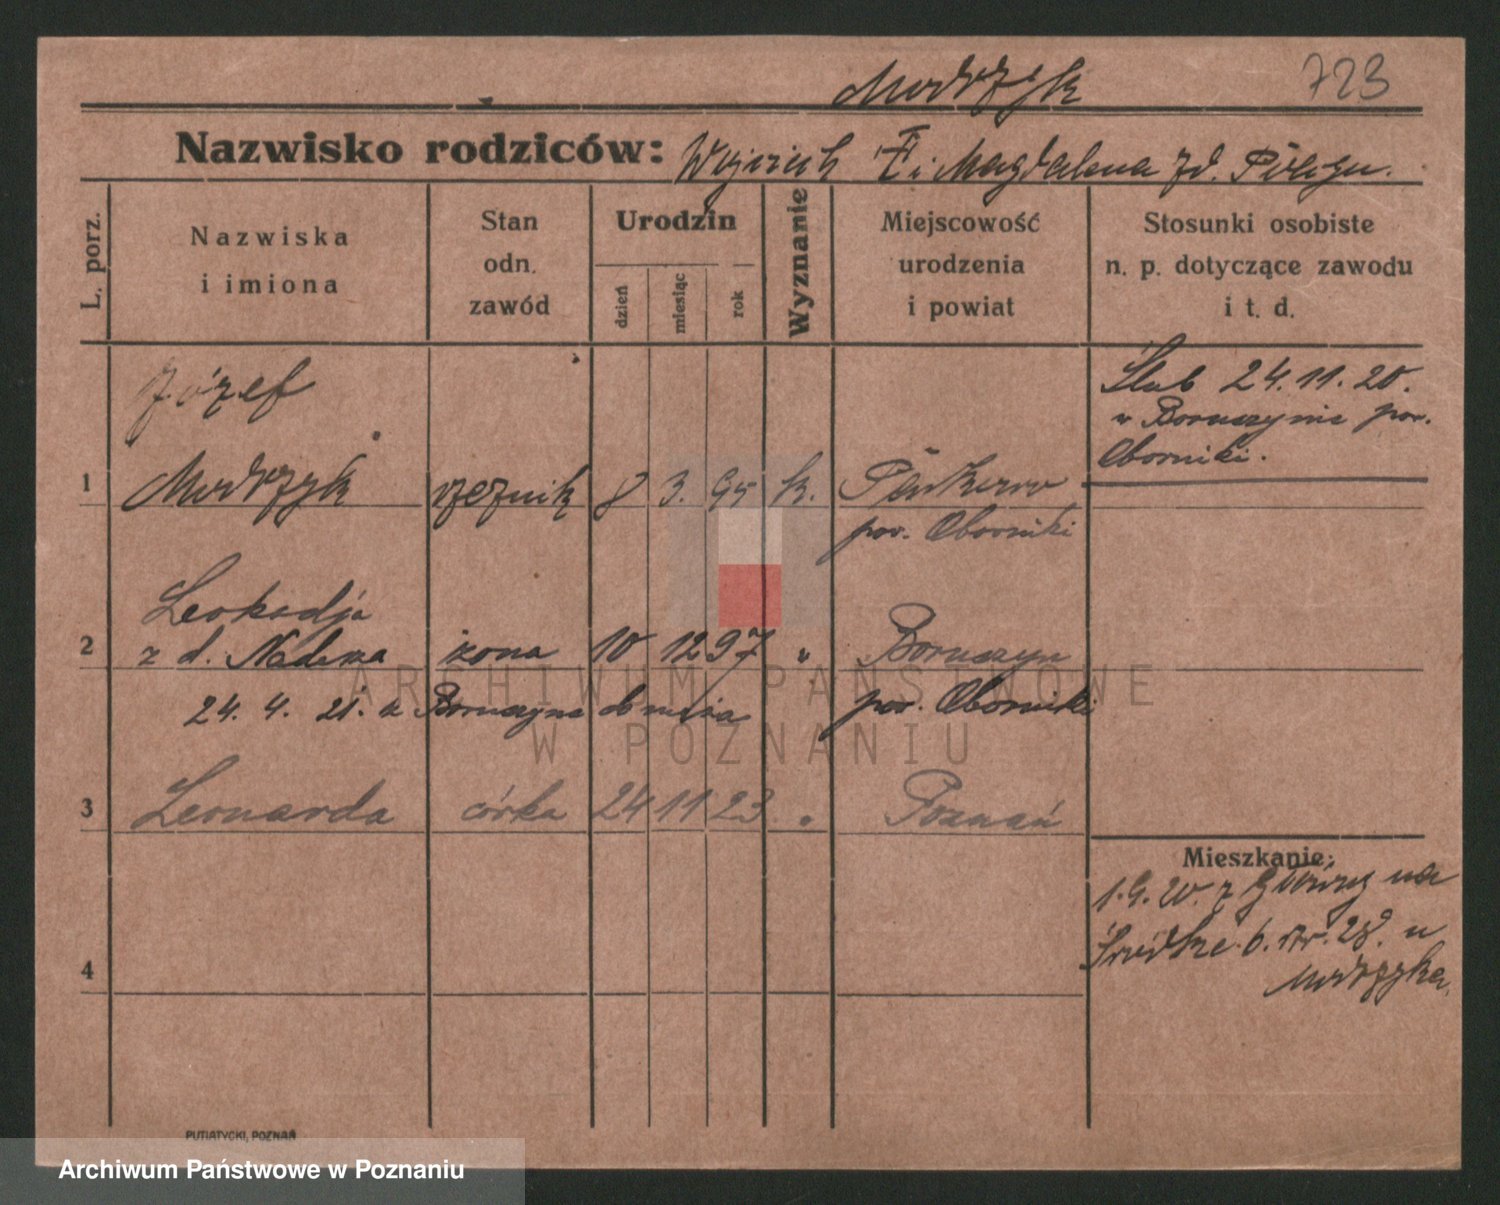 Modrzyk 723
Nazwisko rodziców: Wojciech i Magdalena zd.
L. porz.
Nazwiska i imiona
Stan odn. zawód
Urodzin
dzień miesiąc rok
Wyznanie
Miejscowość urodzenia i powiat
Stosunki osobiste n. p. dotyczące zawodu i t. d.
Józef
1 Modrzyk rzeźnik 8 3. 95 k.
pow. Oborniki
Ślub 24.11.20.
w Boruszynie pow.
Oborniki.
Leokadja
2 z d. żona 10 12 97 " Boruszyn
24. 4. 21. z Boruszyna do męża pow. Oborniki
3 Leonarda córka 24 11 23 " Poznań
4
Mieszkanie:
1.9.20. z na
6. nr. 28. u
Modrzyka.
PUTIATYCKI, POZNAŃ
ARCHIWUM PAŃSTWOWE
W POZNANIU
Archiwum Państwowe w Poznaniu